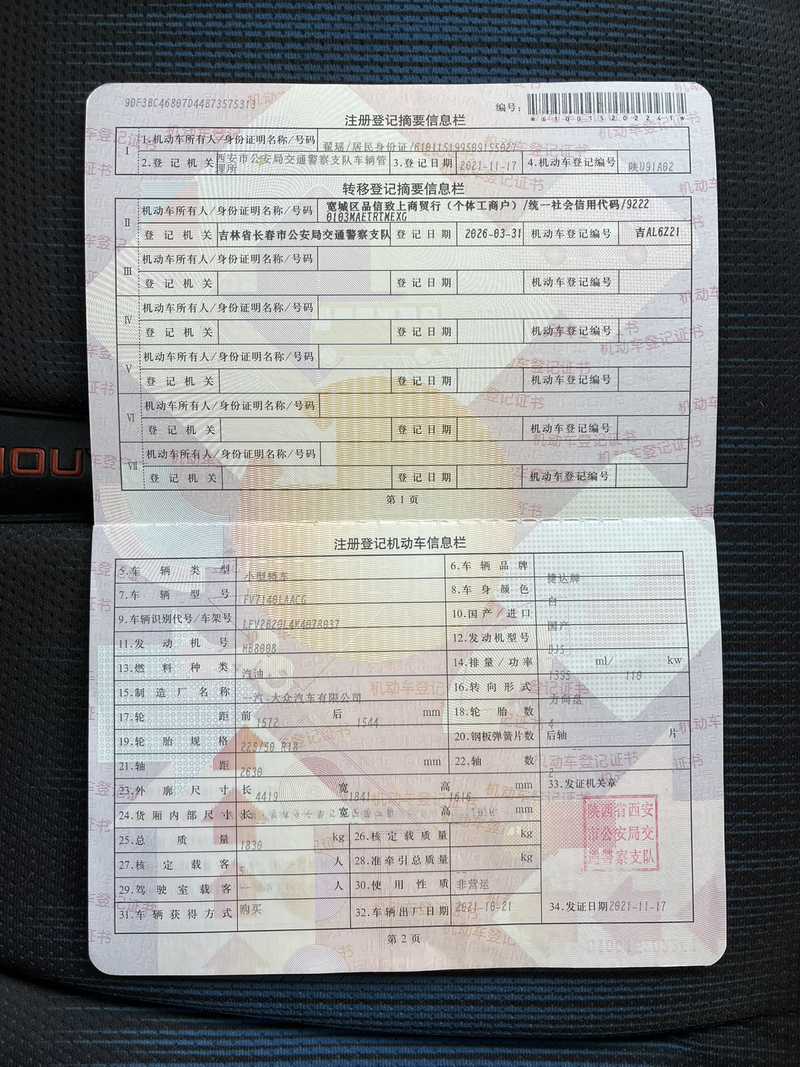 9DF3BC46807D44873575313
编号：
*610013202241*
注册登记摘要信息栏
Ⅰ 1.机动车所有人/身份证明名称/号码 翟瑶/居民身份证/610115199509155027
2.登记机关 西安市公安局交通警察支队车辆管理所 3.登记日期 2021-11-17 4.机动车登记编号 陕U91A02
转移登记摘要信息栏
Ⅱ 机动车所有人/身份证明名称/号码 宽城区品信致上商贸行（个体工商户）/统一社会信用代码/92220103MAETRTMEXG
登记机关 吉林省长春市公安局交通警察支队 登记日期 2026-03-31 机动车登记编号 吉AL6221
Ⅲ 机动车所有人/身份证明名称/号码
登记机关 登记日期 机动车登记编号
Ⅳ 机动车所有人/身份证明名称/号码
登记机关 登记日期 机动车登记编号
Ⅴ 机动车所有人/身份证明名称/号码
登记机关 登记日期 机动车登记编号
Ⅵ 机动车所有人/身份证明名称/号码
登记机关 登记日期 机动车登记编号
Ⅶ 机动车所有人/身份证明名称/号码
登记机关 登记日期 机动车登记编号
第1页
注册登记机动车信息栏
5.车辆类型 小型轿车 6.车辆品牌 捷达牌
7.车辆型号 FV7140LAACG 8.车身颜色 白
9.车辆识别代号/车架号 LFV2B20L4M4078037 10.国产/进口 国产
11.发动机号 MB8008 12.发动机型号 DJS
13.燃料种类 汽油 14.排量/功率 1395 ml/ 110 kw
15.制造厂名称 一汽-大众汽车有限公司 16.转向形式 方向盘
17.轮距 前 1572 后 1544 mm 18.轮胎数 4
19.轮胎规格 225/50 R18 20.钢板弹簧片数 后轴 片
21.轴距 2630 mm 22.轴数 2
23.外廓尺寸 长 4419 宽 1841 高 1616 mm 33.发证机关章
24.货厢内部尺寸 长 宽 高 mm
陕西省西安市公安局交通警察支队
25.总质量 1830 kg 26.核定载质量 kg
27.核定载客 人 28.准牵引总质量 kg
29.驾驶室载客 人 30.使用性质 非营运
31.车辆获得方式 购买 32.车辆出厂日期 2021-10-21 34.发证日期 2021-11-17
第2页